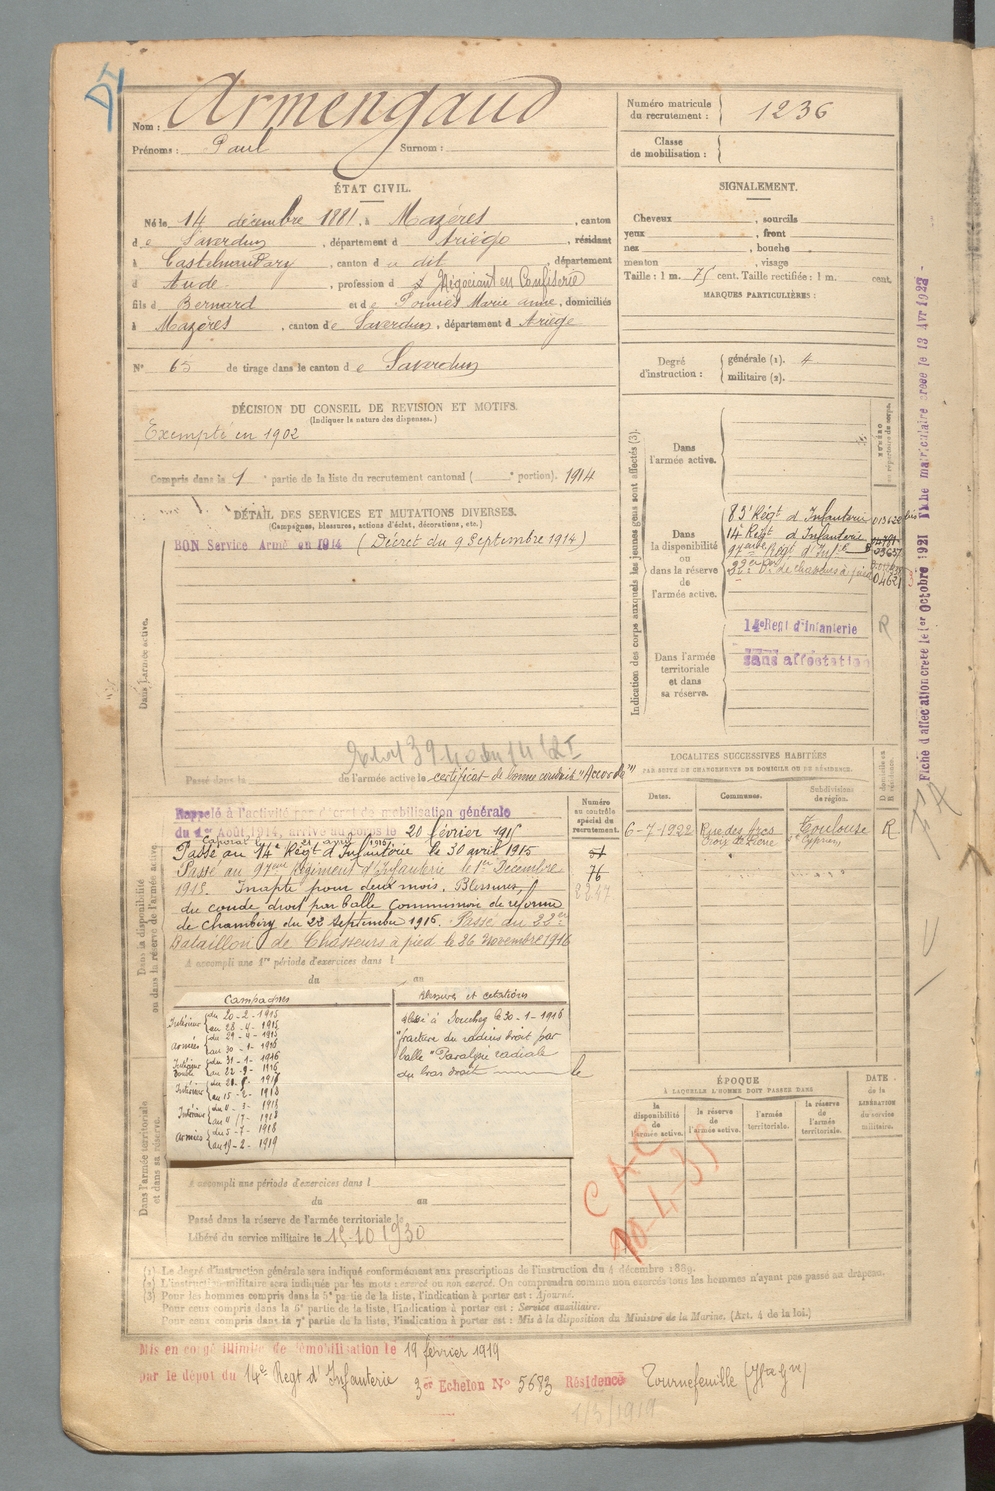 Nom : Armengaud
Prénoms : Paul Surnom :
Numéro matricule du recrutement : 1236
Classe de mobilisation :
ÉTAT CIVIL.
Né le 14 décembre 1881, à Mazères, canton
de Saverdun, département d Ariège, résidant
à Castelnaudary, canton d u dit, département
d Aude, profession d Négociant en Confiserie
fils d Bernard et de Pomiès Marie anne, domiciliés
à Mazères, canton de Saverdun, département d Ariège
N° 65 de tirage dans le canton de Saverdun
SIGNALEMENT.
Cheveux, sourcils
yeux, front
nez, bouche
menton, visage
Taille : 1 m. 75 cent. Taille rectifiée : 1 m. cent.
MARQUES PARTICULIÈRES :
Degré d'instruction : générale (1). 4
militaire (2).
DÉCISION DU CONSEIL DE REVISION ET MOTIFS.
(Indiquer la nature des dispenses.)
Exempté en 1902
Compris dans la 1e partie de la liste du recrutement cantonal ( e portion). 1914
DÉTAIL DES SERVICES ET MUTATIONS DIVERSES.
(Campagnes, blessures, actions d'éclat, décorations, etc.)
BON Service Armé en 1914 (Décret du 9 Septembre 1914)
Dans l'armée active.
Passé dans la de l'armée active le certificat de bonne conduite "Accordé"
Indication des corps auxquels les jeunes gens sont affectés (3).
Dans l'armée active.
Dans la disponibilité ou dans la réserve de l'armée active.
83e Régt d'Infanterie
14e Régt d'Infanterie
97ème Régt d'Infie
22e Bon de chasseurs à pied 04621
Dans l'armée territoriale et dans sa réserve.
14e Regt d'Infanterie R
sans affectation
Fiche d'affectation créée le 1er Octobre 1921 Fiche matriculaire créée le 13 Avr 1922
LOCALITÉS SUCCESSIVES HABITÉES
PAR SUITE DE CHANGEMENTS DE DOMICILE OU DE RÉSIDENCE.
Dates. Communes. Subdivision de région. D domicile ou R résidence.
6-7-1922 Rue des Arcs Croix de Pierre Toulouse St Cyprien R
Dans la disponibilité ou dans la réserve de l'armée active.
Numéro au contrôle spécial du recrutement.
51
76
Rappelé à l'activité par décret de mobilisation générale
du 1er Août 1914, arrivé au corps le 20 février 1915
Caporal le
Passé au 14e Régt d'Infanterie le 30 avril 1915
Passé au 97ème Régiment d'Infanterie le 1er Décembre
1915. Inapte pour deux mois. Blessures,
du coude droit par balle Commission de réforme
de Chambéry du 22 Septembre 1916. Passé au 22ème
Bataillon de Chasseurs à pied le 26 Novembre 1916
A accompli une 1re période d'exercices dans l
du au
Campagnes
Intérieur du 20-2-1915
au 28-4-1915
Armées du 29-4-1915
au 30-1-1916
Intérieur du 31-1-1916
au 22-9-1916
Intérieur
au 15-2-1918
Intérieur du 4-3-1918
au 4-7-1918
Armées du 5-7-1918
au 19-2-1919
Blessures et citations
Blessé à Souchez le 30-1-1916
"fracture du radius droit par
balle" Paralysie radiale
du bras droit
le
ÉPOQUE
À LAQUELLE L'HOMME DOIT PASSER DANS
la disponibilité de l'armée active.
la réserve de l'armée active.
l'armée territoriale.
la réserve de l'armée territoriale.
DATE de la LIBÉRATION du service militaire.
Dans l'armée territoriale et dans sa réserve.
A accompli une période d'exercices dans l
du au
Passé dans la réserve de l'armée territoriale le
Libéré du service militaire le 15-10 1930
(1) Le degré d'instruction générale sera indiqué conformément aux prescriptions de l'instruction du 4 décembre 1889.
(2) L'instruction militaire sera indiquée par les mots : exercé ou non exercé. On comprendra comme non exercés tous les hommes n'ayant pas passé au drapeau.
(3) Pour les hommes compris dans la 5e partie de la liste, l'indication à porter est : Ajourné.
Pour ceux compris dans la 6e partie de la liste, l'indication à porter est : Service auxiliaire.
Pour ceux compris dans la 7e partie de la liste, l'indication à porter est : Mis à la disposition du Ministre de la Marine. (Art. 4 de la loi.)
Mis en congé illimité de démobilisation le 19 février 1919
Par le dépot du 14e Regt d'Infanterie 3er Echelon N° 5683 Résidence Tournefeuille (Hte Gne)
1/3/1919